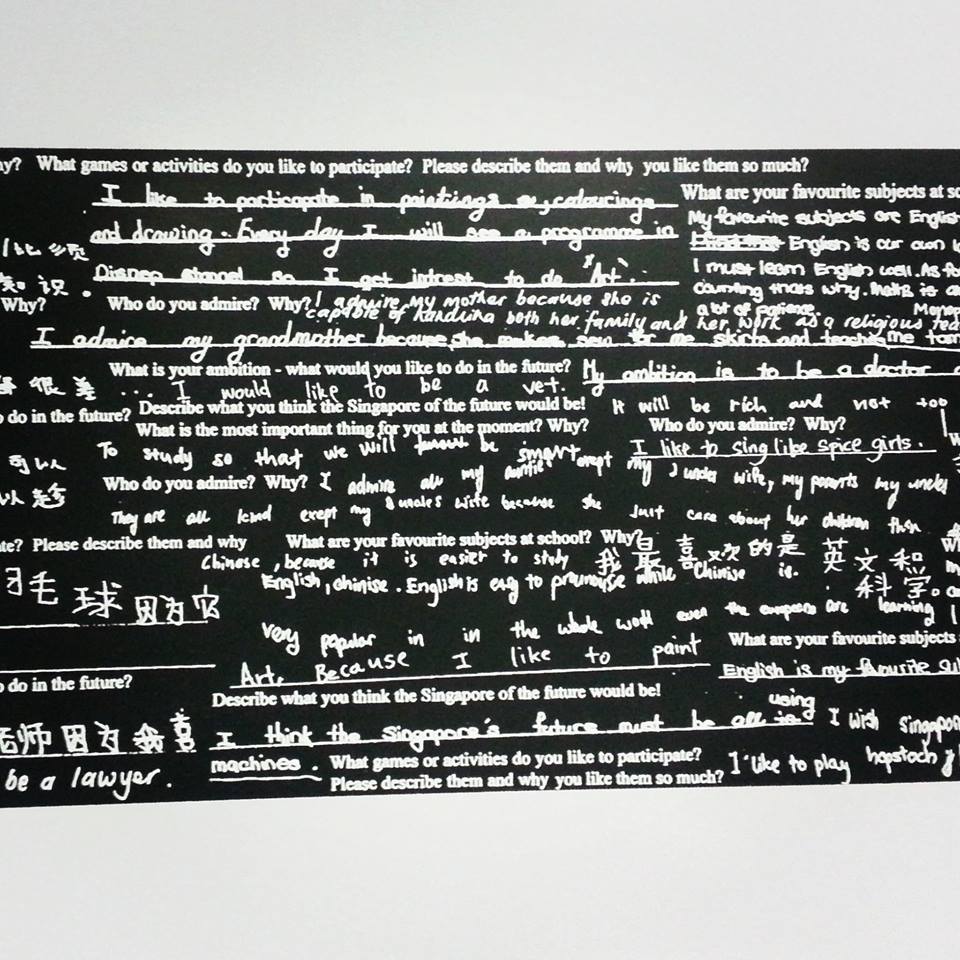 hy? What games or activities do you like to participate? Please describe them and why you like them so much?
I like to participate in paintings colourings
What are your favourite subjects at sc
My favourite subjects are English
and drawing. Every day I will see a programme in
English is our own l
Disnep channel so I get intrest to do "Art".
I must learn English well. As fo
知识.
counting thats why. Maths is a
Why? Who do you admire? Why? I admire my mother because she is
a lot of patience.
capable of handling both her family and her work as a religious tea
I admire my grandmother because she makes sew for me skirts and teaches me
What is your ambition - what would you like to do in the future? My ambition is to be a doctor
很差 ... I would like to be a vet.
o do in the future? Describe what you think the Singapore of the future would be! It will be rich and not too
What is the most important thing for you at the moment? Why? Who do you admire? Why?
To study so that we will be smart
I like to sing like spice girls.
可以
Who do you admire? Why? I admire all my auntie exept my uncle wife, my parents my uncles
They are all kind exept my uncles wife because she just care about her children then
ate? Please describe them and why What are your favourite subjects at school? Why?
Chinese, because it is easier to study 我最喜欢的是英文和
English, chinise. English is easy to prounouse while Chinise is. 科学。
毛球因为
very popular in in the whole world even the europeans are learning
What are your favourite subjects
Art, Because I like to paint
English is my favourite su
o do in the future?
Describe what you think the Singapore of the future would be!
师因为我喜
I think the Singapore's future must be all is using
machines.
I wish Singapor
be a lawyer.
What games or activities do you like to participate?
Please describe them and why you like them so much? I like to play hopstoch